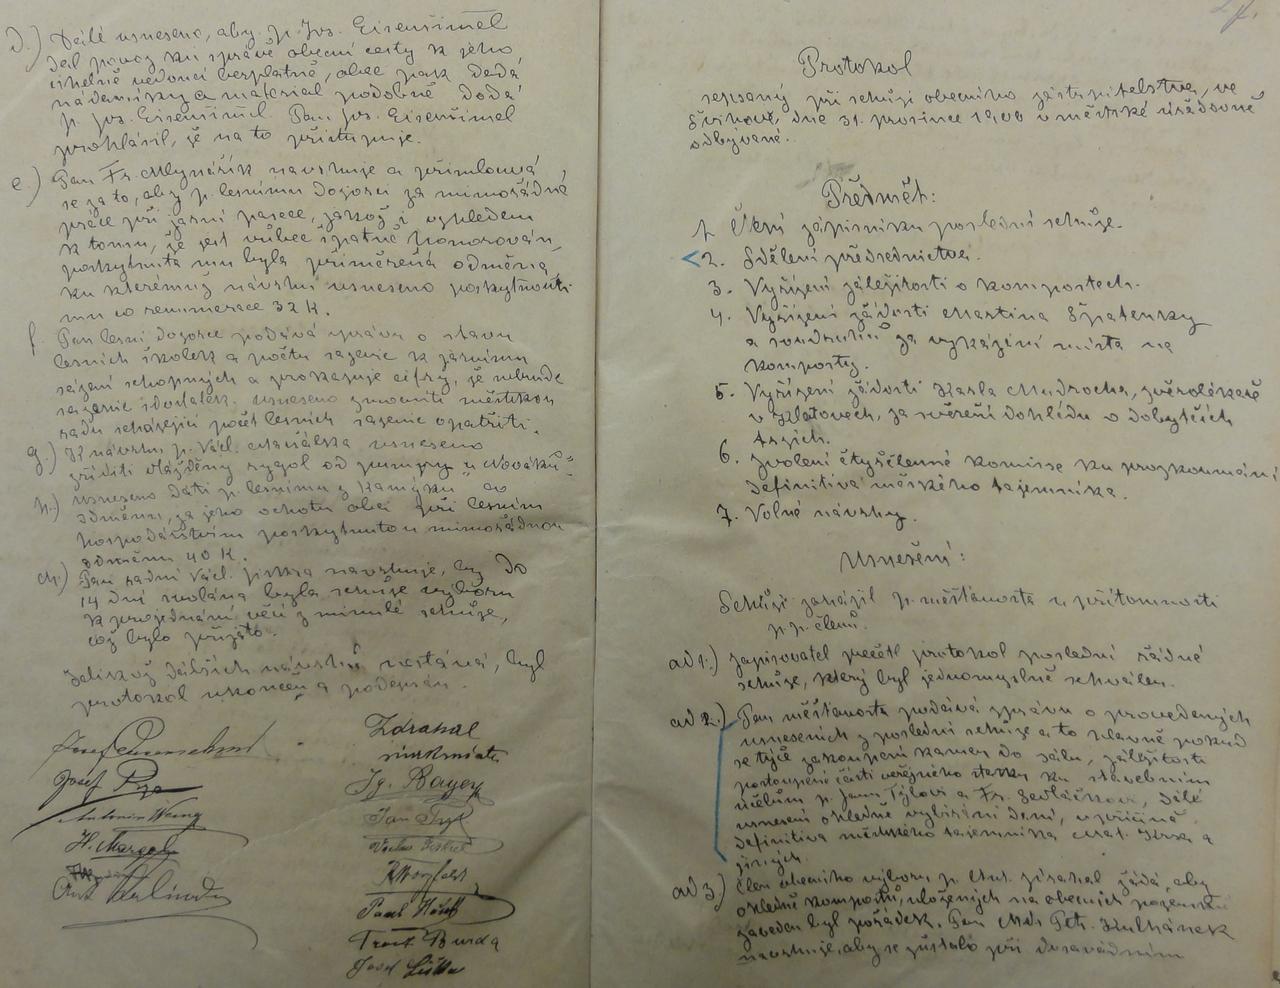 d.) Déle usneseno, aby p. Jos. Eisenšiml
dal povoz ku správě obecní cesty k jeho
cihelně vedoucí bezplatně, obec pak dodá
nádeníky a material podobně dodá
p. Jos. Eisenšiml. Pan Jos. Eisenšiml
prohlásil, že na to přistupuje.
e.) Pan Fr. Mlynářík navrhuje a přimlouvá
se za to, aby p. lesnímu dozorci za mimořádné
práce při jarní pasece, jakož i vzhledem
k tomu, že jest vůbec špatně honorován,
poskytnuta mu byla přiměřená odměna,
ku kterémuž návrhu usneseno poskytnouti
mu co remunerace 32 K.
f. Pan lesní dozorce podává zprávu o stavu
lesních školek a počtu sazenic k jarnímu
sázení schopných a prokazuje cifry, že nebude
sazenic dostatek. usneseno zmocniti městskou
radu scházející počet lesních sazenic opatřiti.
g.) K návrhu p. Václ. usneseno
zříditi dlážděný rygol od pumpy u Nováků
h.) usneseno dáti p. lesnímu z Kamýku co
odměnu, za jeho ochotu obci při lesním
hospodářství poskytnutou mimořádnou
odměnu 40 K.
ch.) Pan radní Václ. Jiskra navrhuje, by do
14 dní svolána byla schůze výboru
k projednání věcí z minulé schůze,
což bylo přijato.
Jelikož dalších návrhů nestává, byl
protokol ukončen a podepsán.
Josef
Josef
Antonín
H.
Zdrahal
Ig. Bayer
Jan Tyl
Václav
Pavel
Frant Burda
Josef Liška
Protokol
sepsaný při schůzi obecního zastupitelstva, ve
Švihově, dne 31. prosince 1900 v městské úřadovně
odbývané.
Předmět:
1. Čtení zápisníku poslední schůze.
2. Sdělení předsednictva.
3. Vyřízení záležitosti o kompostech.
4. Vyřízení žádosti Martina Špatenky
a soudruhů za vykázání místa na
komposty.
5. Vyřízení žádosti Karla Mudrocha, zvěrolékaře
v Klatovech, za svěření dohledu o dobytčích
trzích.
6. Zvolení čtyřčlenné komisse ku prozkoumání
definitiva městského tajemníka.
7. Volné návrhy.
Usnešení:
Schůzi zahájil p. měšťanosta u přítomnosti
p. p. členů.
ad 1.) Zapisovatel přečetl protokol poslední řádné
schůze, který byl jednomyslně schválen.
ad 2.) Pan měšťanosta podává zprávu o provedených
usneseních z poslední schůze a to hlavně pokud
se týče zakoupení kamen do sálu, záležitosti
postoupené části veřejného statku ku stavebním
účelům p. Janu Tylovi a Fr. Sedláčkovi, dále
usnesení ohledně vybírání daní, u příčině
definitiva městského tajemníka Mat. a
jiných.
ad 3.) Člen obecního výboru p. Ant. žádá, aby
ohledně kompostů, uložených na obecních pozemcích
zaveden byl pořádek. Pan Petr Kulhánek
navrhuje, aby se zůstalo při dosavádním